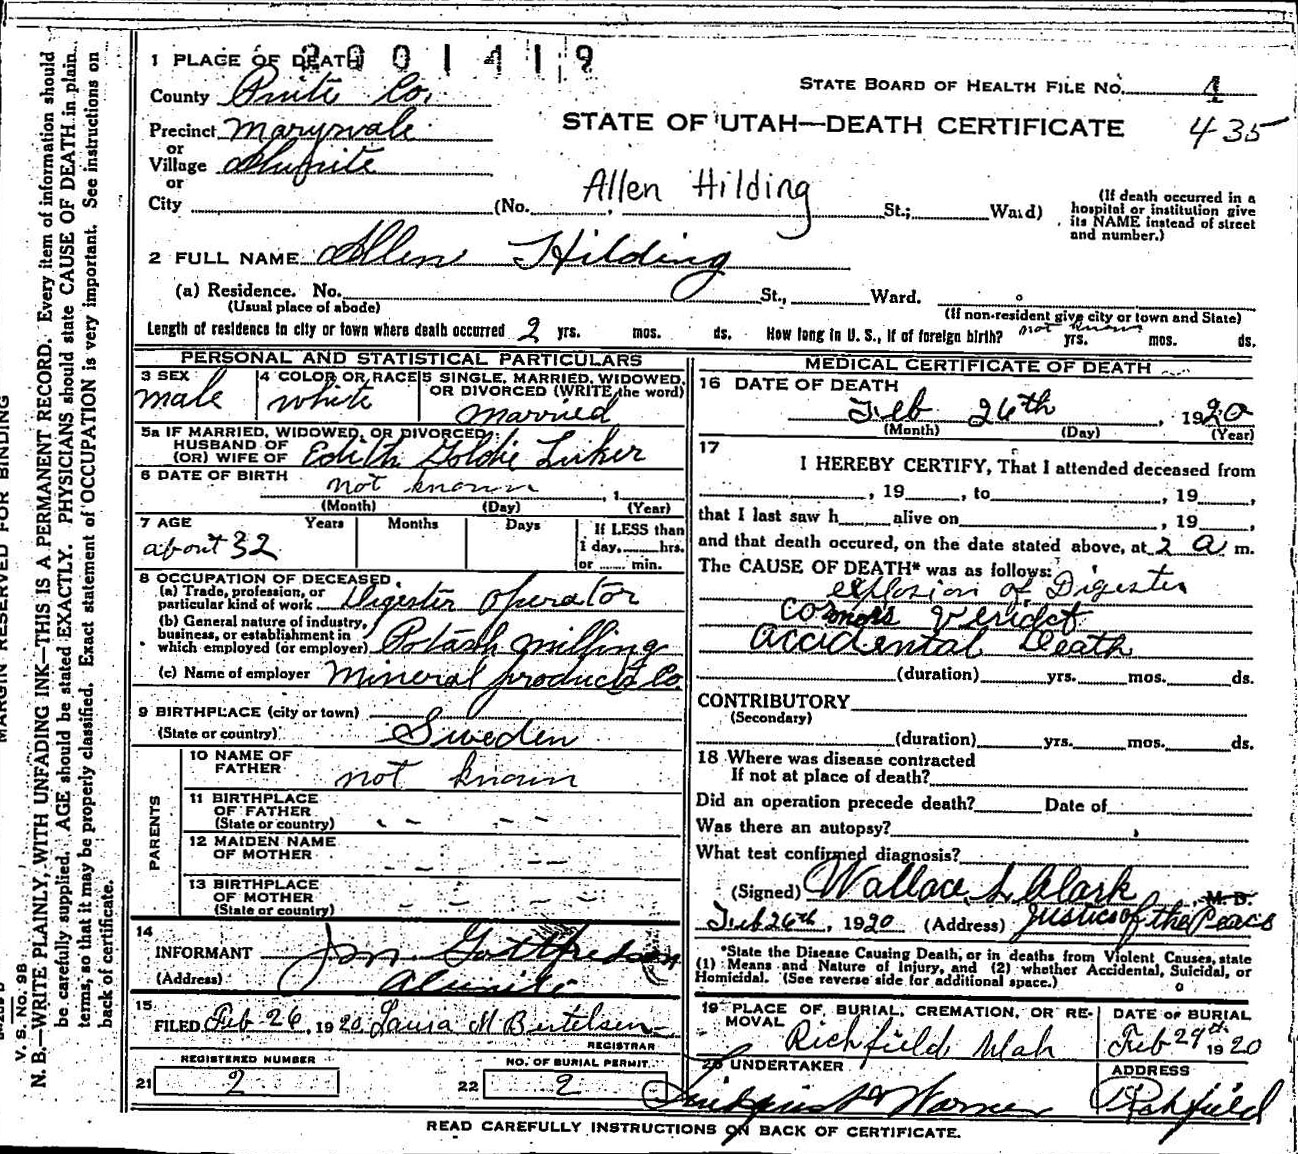 1 PLACE OF DEATH 2001419
STATE BOARD OF HEALTH FILE NO. 4
County Piute Co.
STATE OF UTAH—DEATH CERTIFICATE 435
Precinct Marysvale
or
Village Alunite
or
City (No. Allen Hilding St.; Ward)
(If death occurred in a hospital or institution give its NAME instead of street and number.)
2 FULL NAME Allen Hilding
(a) Residence. No. St., Ward.
(Usual place of abode) (If non-resident give city or town and State)
Length of residence in city or town where death occurred 2 yrs. mos. ds. How long in U. S., if of foreign birth? not known yrs. mos. ds.
PERSONAL AND STATISTICAL PARTICULARS
3 SEX male
4 COLOR OR RACE white
5 SINGLE, MARRIED, WIDOWED, OR DIVORCED (WRITE the word) Married
5a IF MARRIED, WIDOWED, OR DIVORCED
HUSBAND OF
(OR) WIFE OF Edith Goldie
6 DATE OF BIRTH not known , 1
(Month) (Day) (Year)
7 AGE Years Months Days If LESS than
about 32 1 day, hrs.
or min.
8 OCCUPATION OF DECEASED
(a) Trade, profession, or
particular kind of work Digester operator
(b) General nature of industry,
business, or establishment in
which employed (or employer) Potash milling
(c) Name of employer Mineral products Co.
9 BIRTHPLACE (city or town)
(State or country) Sweden
PARENTS
10 NAME OF
FATHER not known
11 BIRTHPLACE
OF FATHER
(State or country) - - - -
12 MAIDEN NAME
OF MOTHER - - - -
13 BIRTHPLACE
OF MOTHER
(State or country) - - - - -
14
INFORMANT Gottfredson
(Address) Alunite
15
FILED Feb 26, 1920 Laura M Bertelsen
REGISTRAR
REGISTERED NUMBER NO. OF BURIAL PERMIT
21 2 22 2
MEDICAL CERTIFICATE OF DEATH
16 DATE OF DEATH
Feb 26th, 1920
(Month) (Day) (Year)
17
I HEREBY CERTIFY, That I attended deceased from
, 19 , to , 19 ,
that I last saw h alive on , 19 ,
and that death occured, on the date stated above, at 2 a m.
The CAUSE OF DEATH* was as follows:
explosion of Digester
verdict
accidental Death
(duration) yrs. mos. ds.
CONTRIBUTORY
(Secondary)
(duration) yrs. mos. ds.
18 Where was disease contracted
If not at place of death?
Did an operation precede death? Date of
Was there an autopsy?
What test confirmed diagnosis?
(Signed) Wallace L Clark, M. D.
Feb 26th, 1920 (Address) Justice of the Peace
*State the Disease Causing Death, or in deaths from Violent Causes, state
(1) Means and Nature of Injury, and (2) whether Accidental, Suicidal, or
Homicidal. (See reverse side for additional space.)
19 PLACE OF BURIAL, CREMATION, OR RE-
MOVAL Richfield Utah
DATE OF BURIAL
Feb 29th 1920
20 UNDERTAKER
ADDRESS
Richfield
READ CAREFULLY INSTRUCTIONS ON BACK OF CERTIFICATE.
MARGIN RESERVED FOR BINDING
V. S. No. 9B
N. B.—WRITE PLAINLY, WITH UNFADING INK—THIS IS A PERMANENT RECORD. Every item of information should
be carefully supplied. AGE should be stated EXACTLY. PHYSICIANS should state CAUSE OF DEATH in plain
terms, so that it may be properly classified. Exact statement of OCCUPATION is very important. See instructions on
back of certificate.